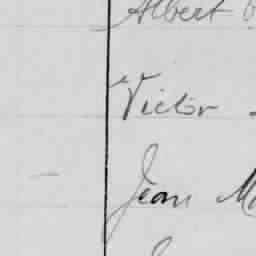 Albert
Victor
Jean